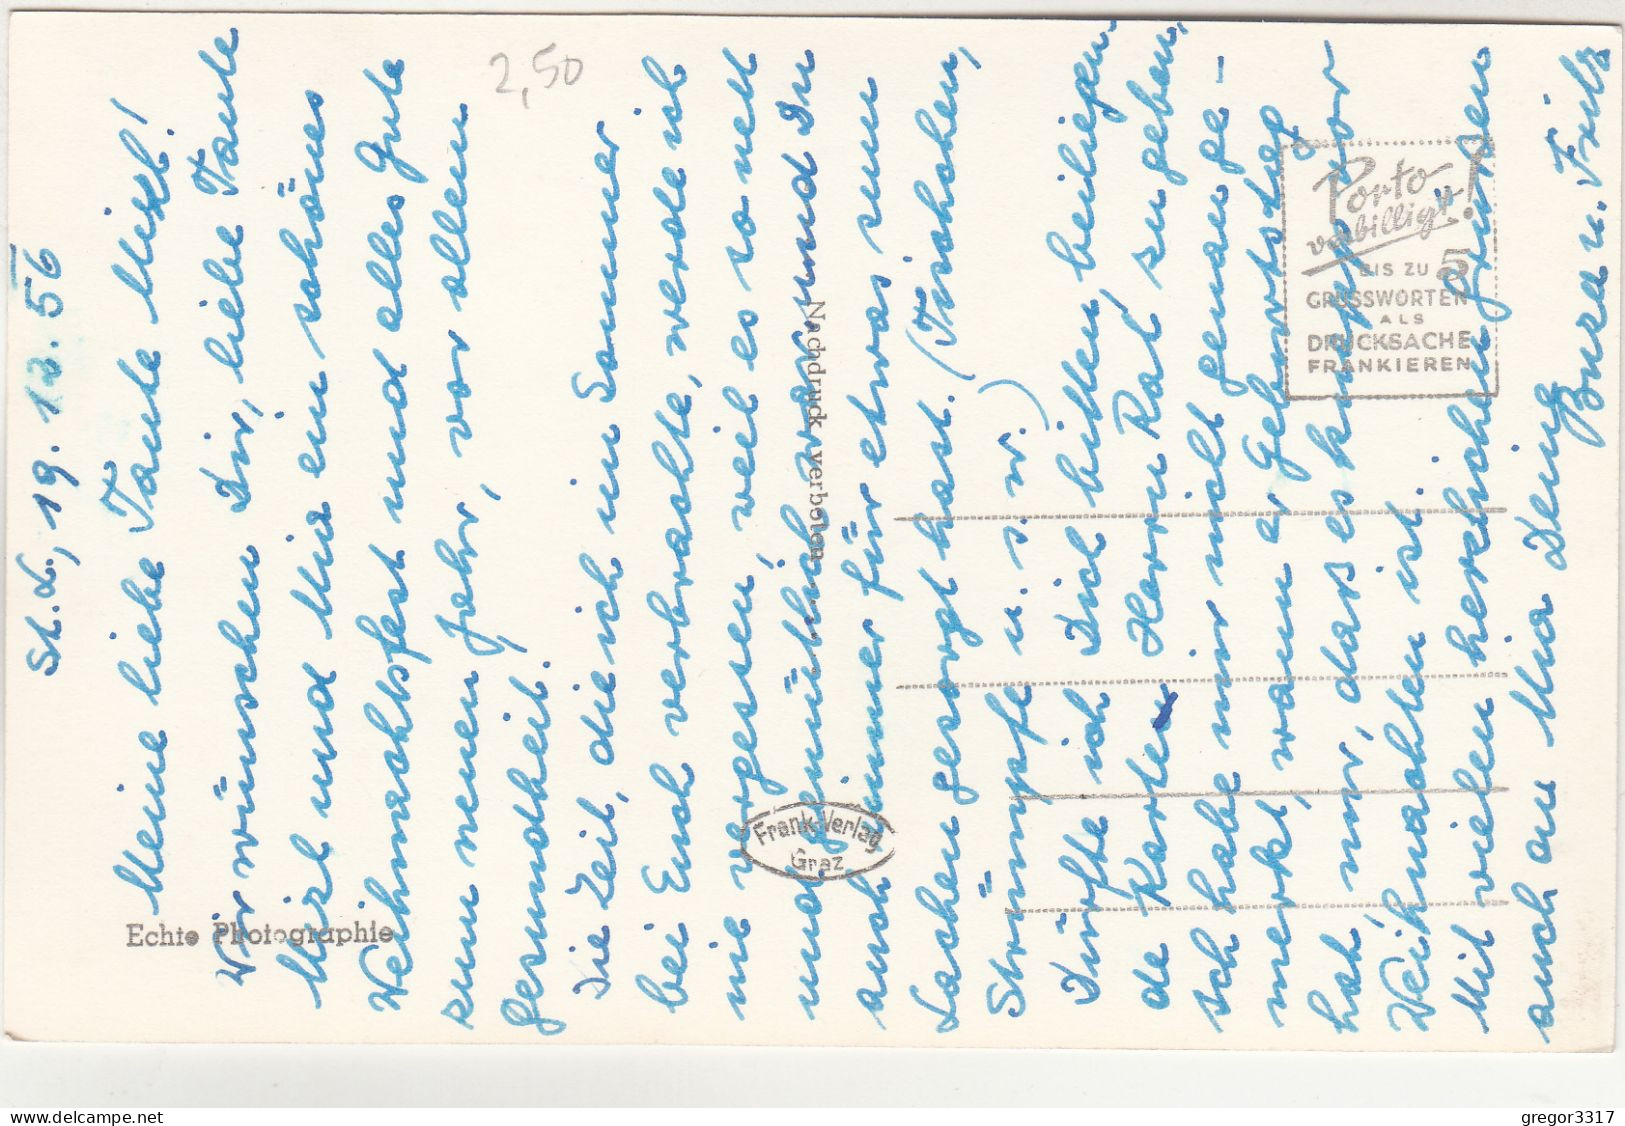 St. L., 19. 12. 56
Meine liebe Tante Mizl!
Wir wünschen Dir, liebe Tante
Mizl und Mia ein schönes
Weihnachtsfest und alles Gute
zum neuen Jahr, vor allem
Gesundheit.
Die Zeit, die ich im Sommer
bei Euch verbrachte, werde ich
nie vergessen, weil es so nett
und gemütlich war und Du
auch immer für etwas zum
Lachen gesorgt hast. (Tischchen,
Strümpfe u. s. w.)
Dürfte ich Dich bitten, beiliegen-
de Karte Herrn Rat zu geben,
ich habe mir nicht genau ge-
merkt, wann er Geburtstag
hat, nur, daß es knapp vor
Weihnachten ist.
Mit vielen herzlichen Grüßen
auch an Mia Deine
u. Fritz
2,50
Echte Photographie
Nachdruck verboten
Frank-Verlag
Graz
Porto
verbilligt!
BIS ZU 5
GRUSSWORTEN
ALS
DRUCKSACHE
FRANKIEREN
gregor3317